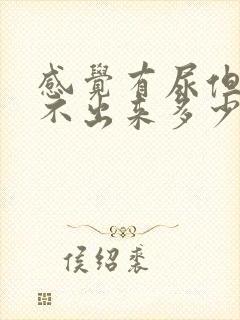 感覺有尿但
不出来多少
侯绍裘